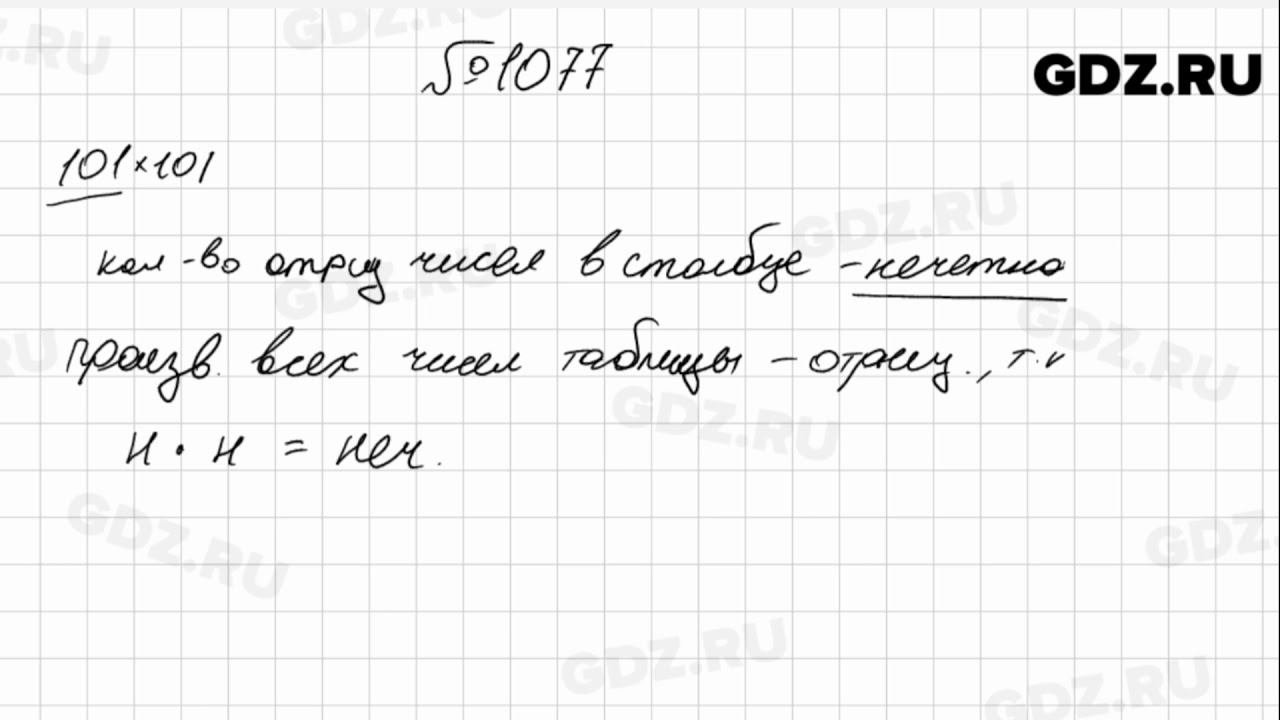 №1077
GDZ.RU
101×101
кол-во отриц чисел в столбце - нечетно
произв. всех чисел таблицы - отриц., т.к
н · н = неч.